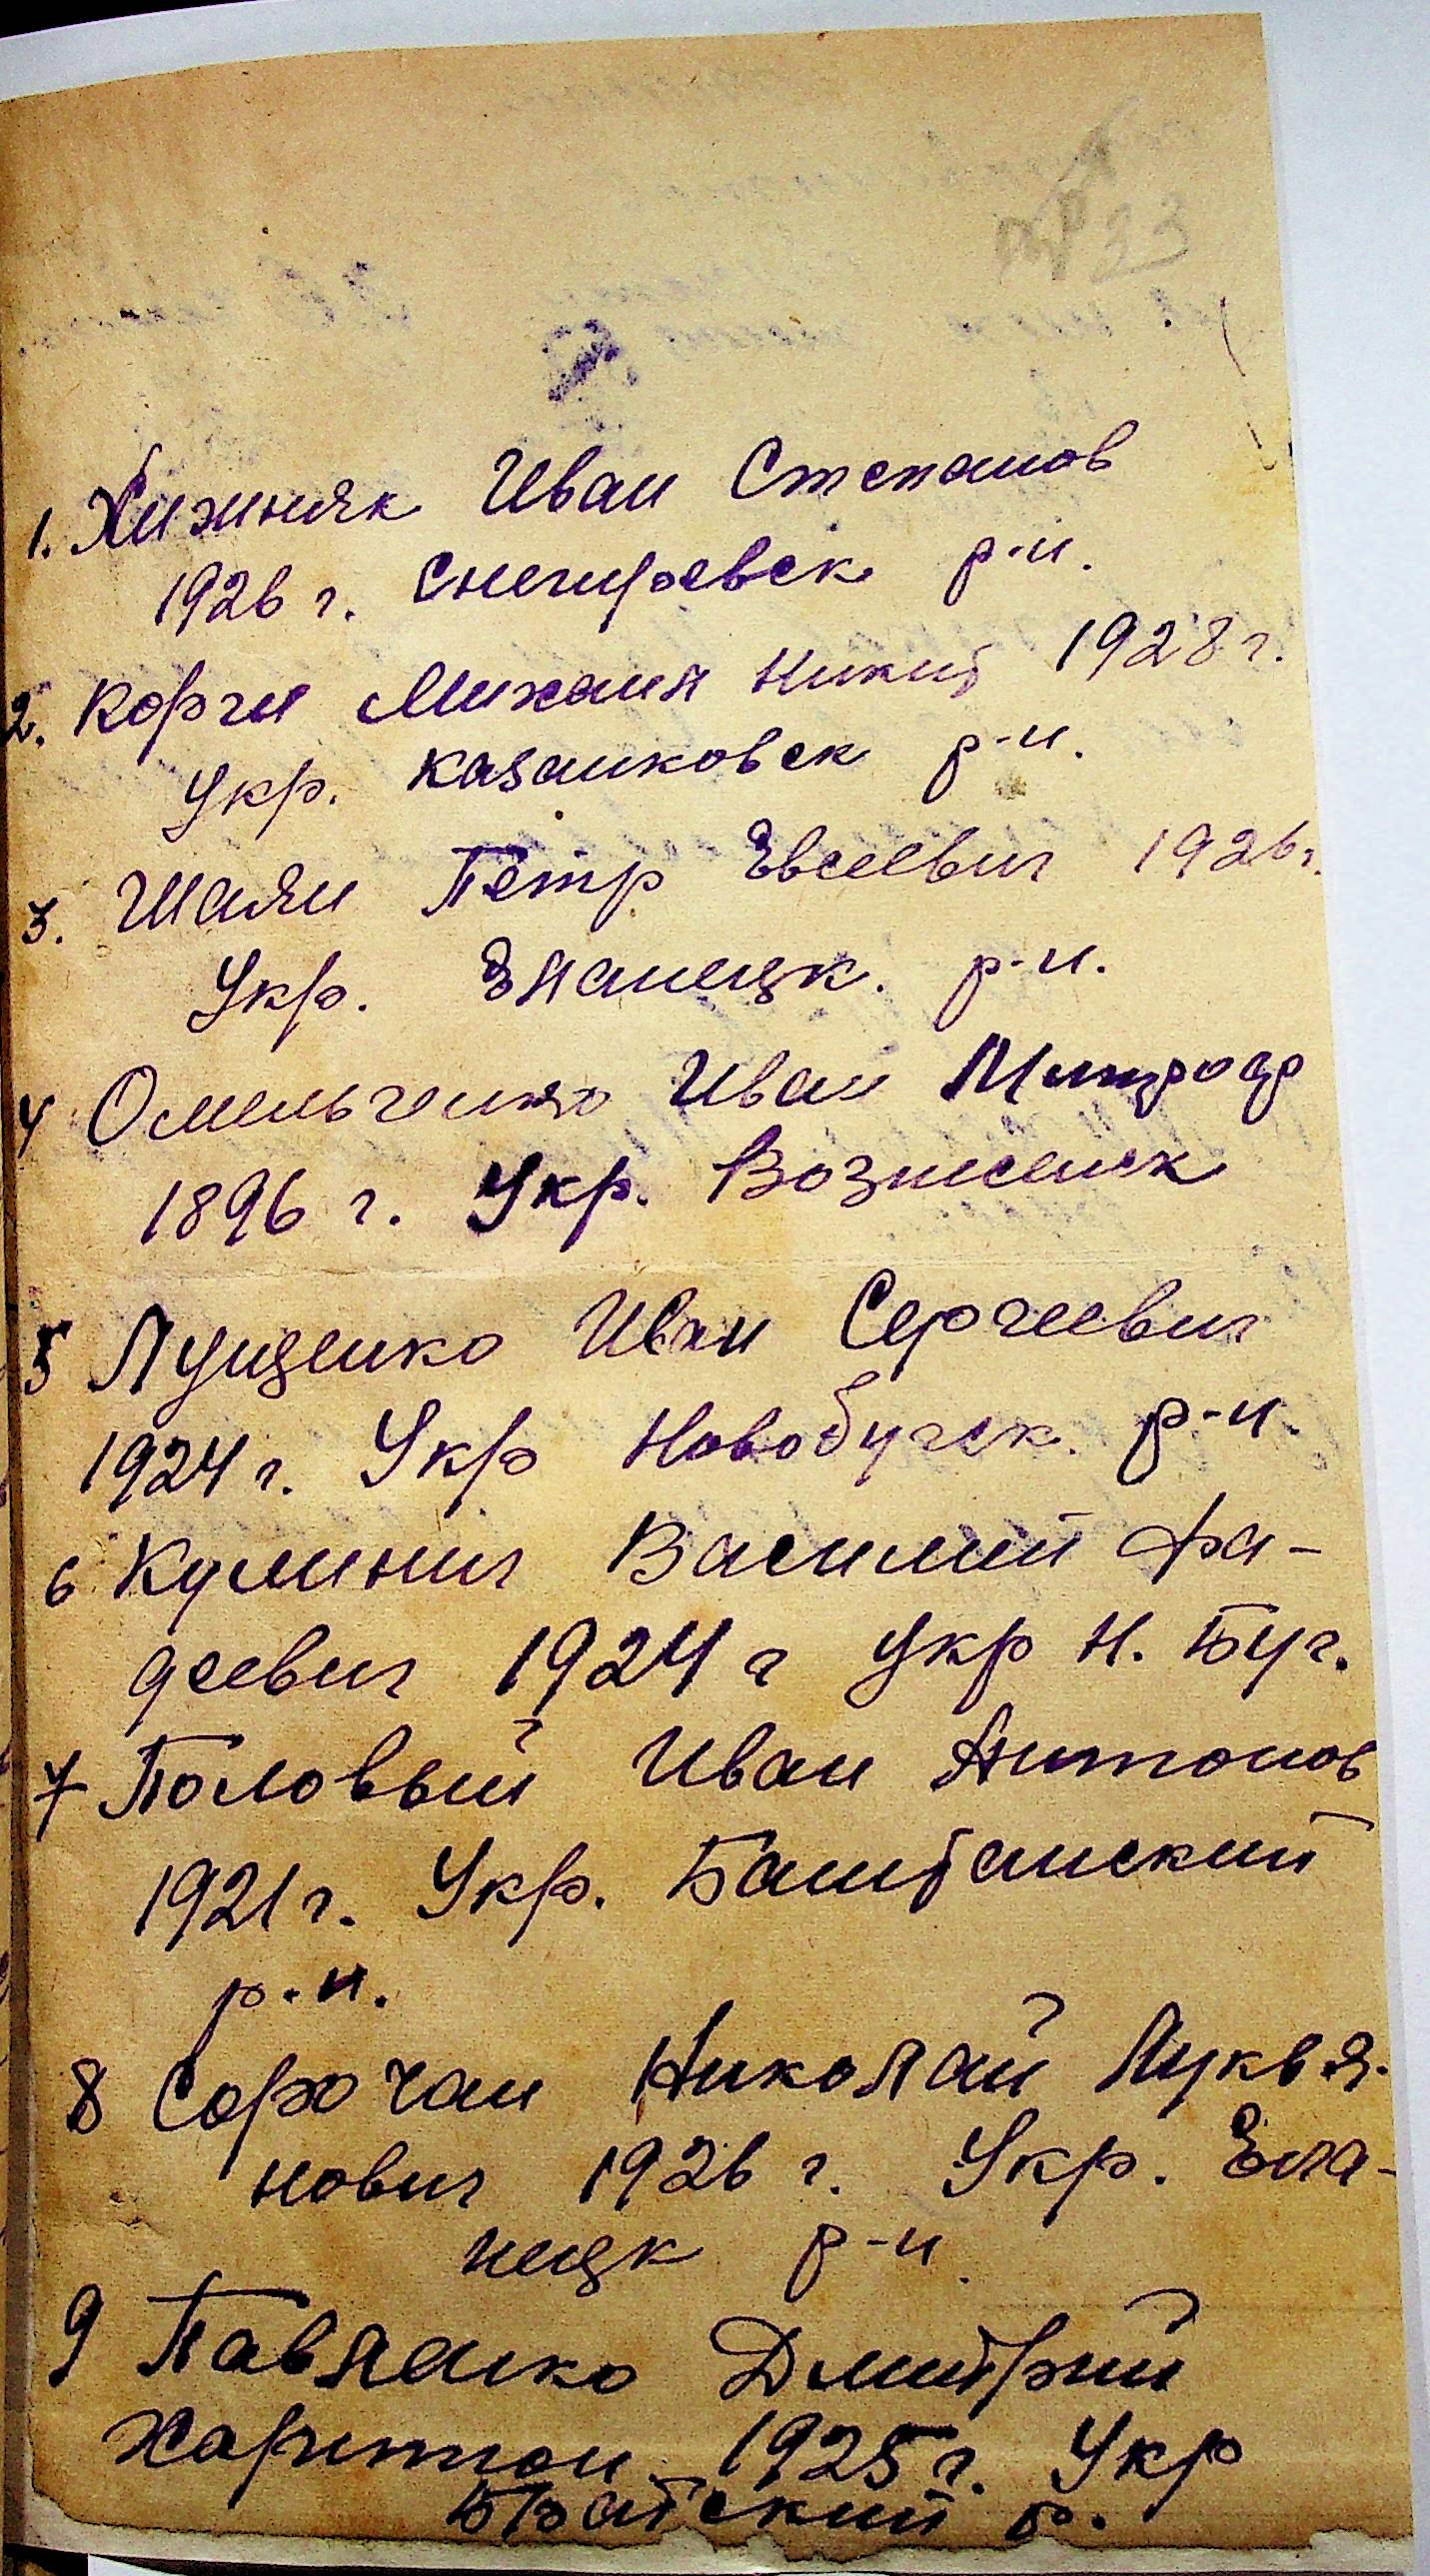 33
1. Хижняк Иван Степанов
1926 г. Снегиревск р-н.
2. Корги Михаил Никит 1928 г.
Укр. Казанковск р-н.
3. Шаян Петр Евсеевич 1926 г.
Укр. Эланецк. р-н.
4 Омельченко Иван Митроф
1896 г. Укр. Вознесенск
5 Лущенко Иван Сергеевич
1924 г. Укр Новобугск. р-н.
6 Кулинич Василий Фа-
деевич 1924 г Укр Н. Буг.
7 Половый Иван Антонов
1921 г. Укр. Баштанский
р.н.
8 Сорочан Николай Луквя-
нович 1926 г. Укр. Ела-
нецк р-н
9 Павленко Дмитрий
Харитон 1925 г. Укр
Братский р.